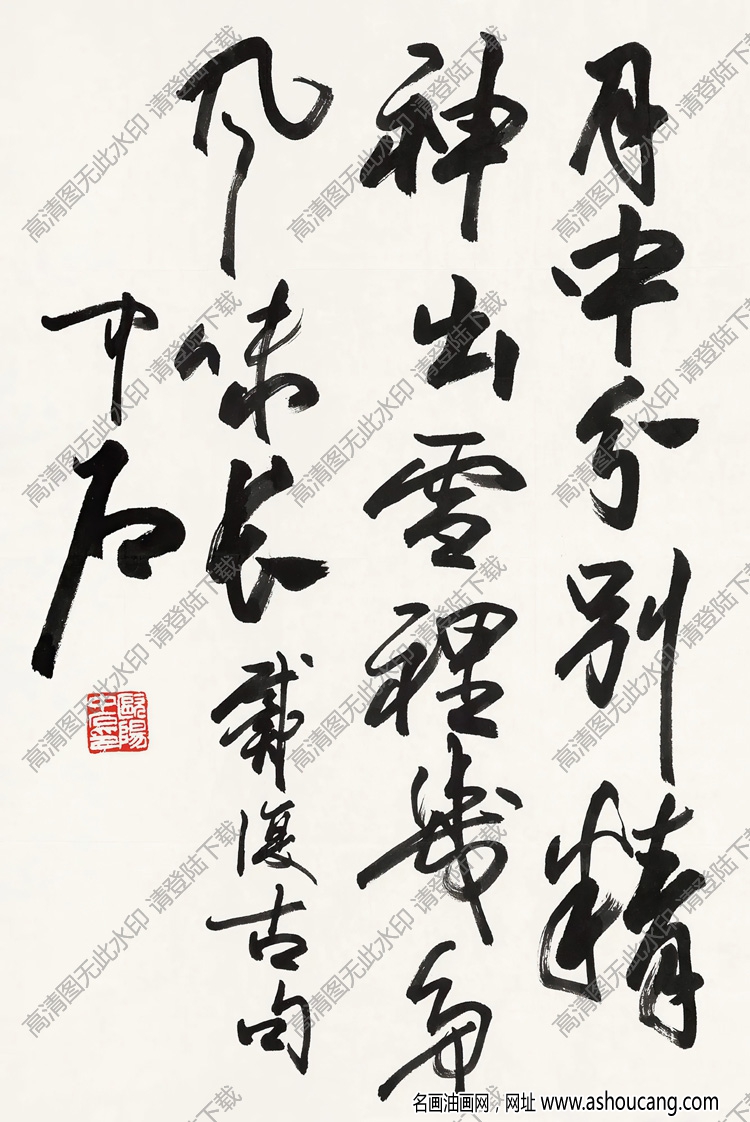 月中分别精
神出雪裡幾
风味长 戴復古句
中石
歐陽
高清图无此水印 请登陆下载
名画油画网，网址 www.ashoucang.com